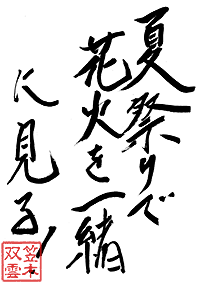 夏祭りで
花火を一緒
に見る!
笠木
双雲